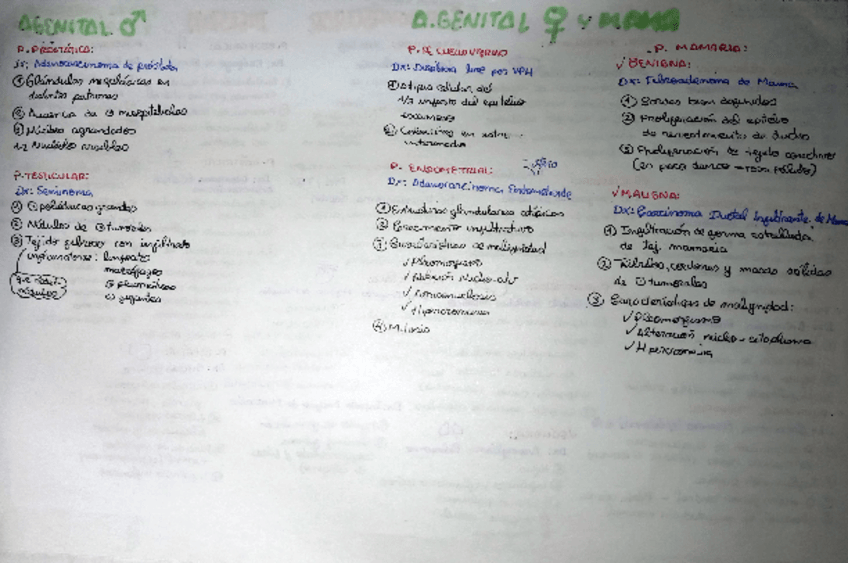 A GENITAL ♂
P. PROSTÁTICA:
Dx: Adenocarcinoma de próstata
① Glándulas neoplásicas en
distintos patrones
② Ausencia de
③ Núcleos agrandados
P. TESTICULAR:
Dx: Seminoma
① poliédricas grandes
② Nódulos de tumorales
③ Tejido fibroso con infiltrado
inflamatorio: linfocitos
macrófagos
plasmáticas
gigantes
A. GENITAL ♀ y MAMA
P. DE CUELLO UTERINO
Dx: Displasia leve por VPH
① Atipia celular del
1/3 del epitelio
escamoso
②
P. ENDOMETRIAL:
Dx: Adenocarcinoma Endometroide
① Estructuras glandulares atípicas
② Crecimiento infiltrativo
③ Características de malignidad
✓ Pleomorfismo
✓ Relación núcleo-cit
✓ Anisonucleosis
✓ Hipercromasia
④ Mitosis
P. MAMARIA:
✓ BENIGNA:
Dx: Fibroadenoma de Mama
① Bordes bien definidos
② Proliferación del epitelio
de revestimiento de ductos
③ Proliferación de tejido conectivo
✓ MALIGNA:
Dx: Carcinoma Ductal Infiltrante de Mama
① Infiltración de forma estrellada
de Tej. mamario
② Túbulos, cordones y masas sólidas
de tumorales
③ Características de malignidad:
✓ Pleomorfismo
✓ Alteración núcleo-citoplasma
✓ Hipercromasia